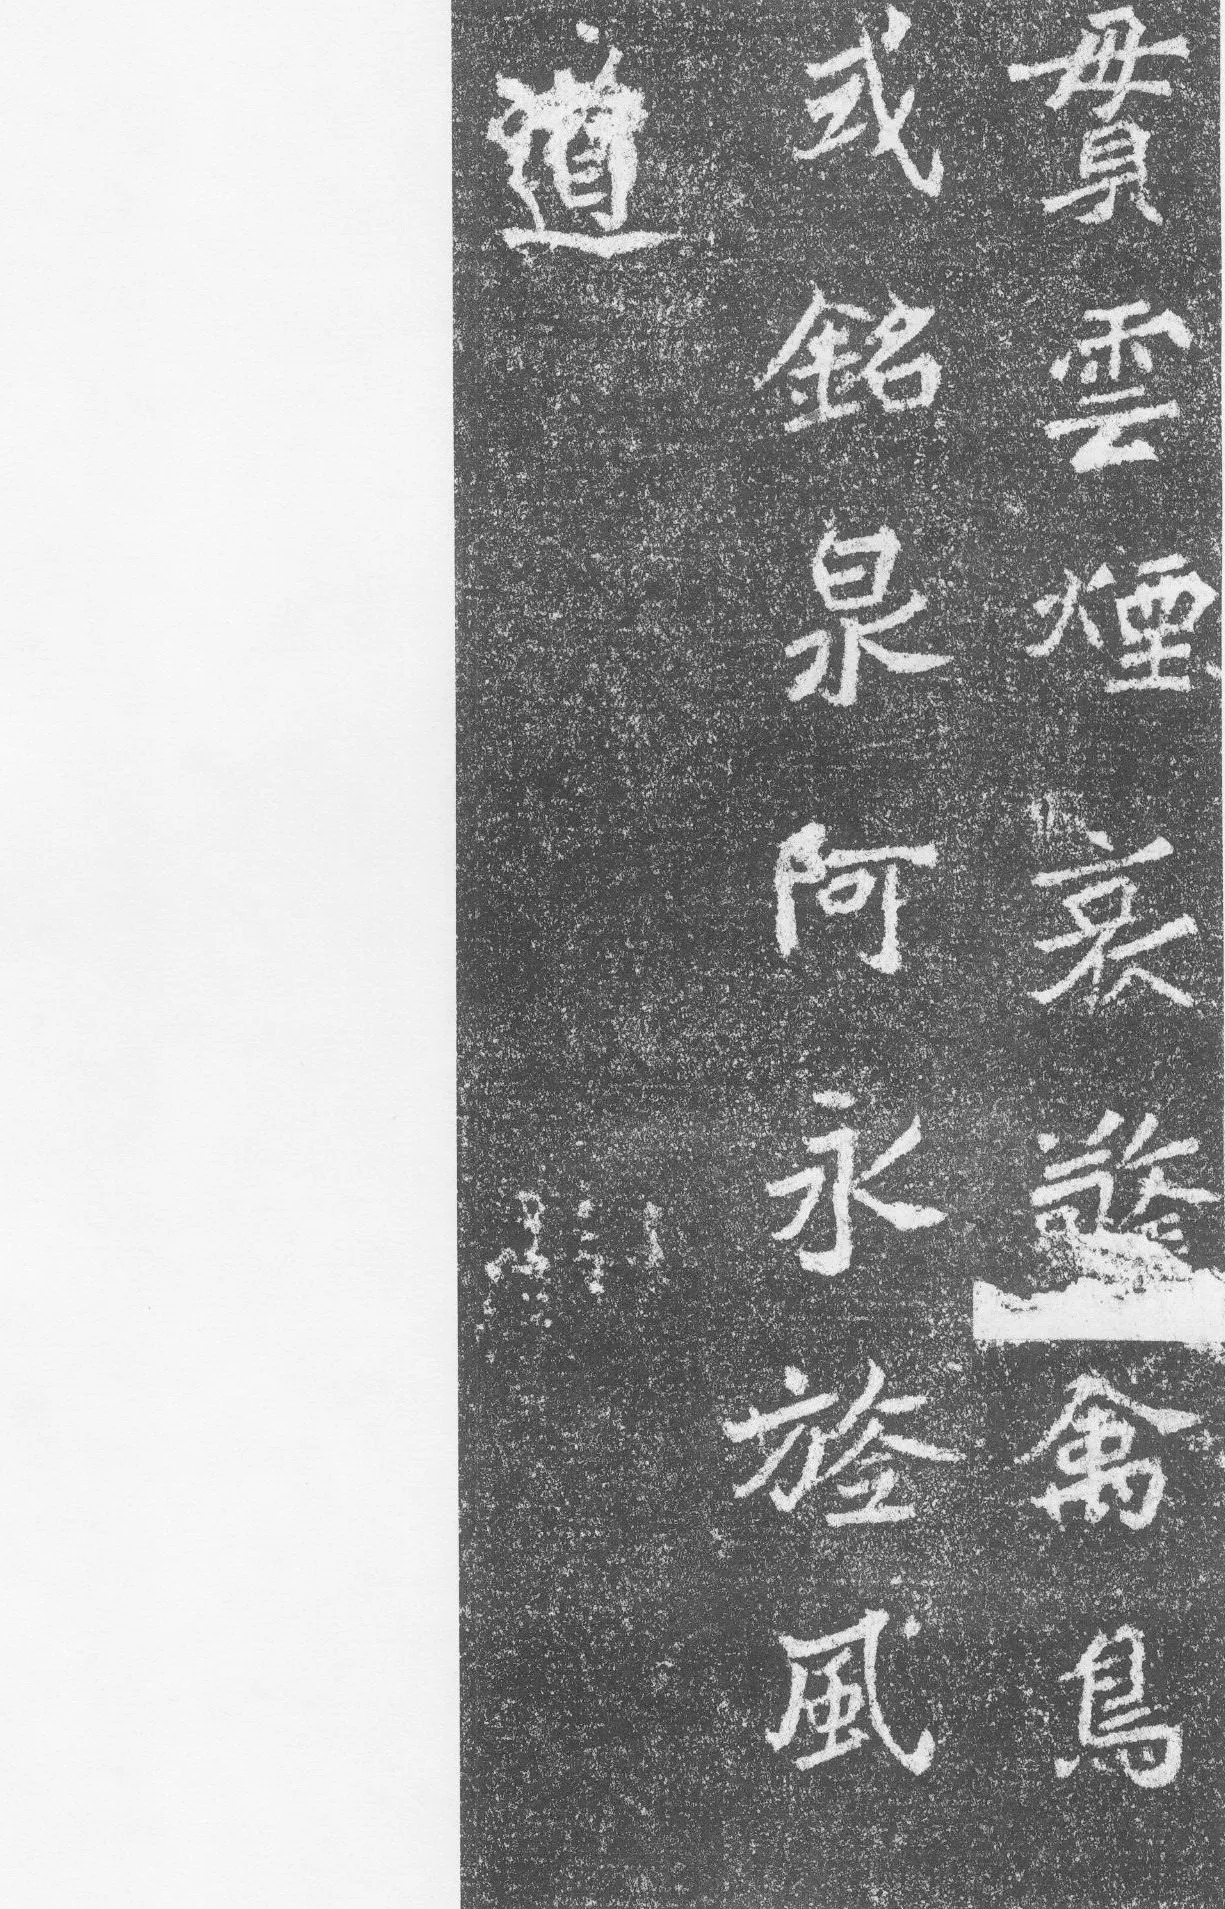 貫雲煙哀禽鳥
式銘泉阿永旌風
道